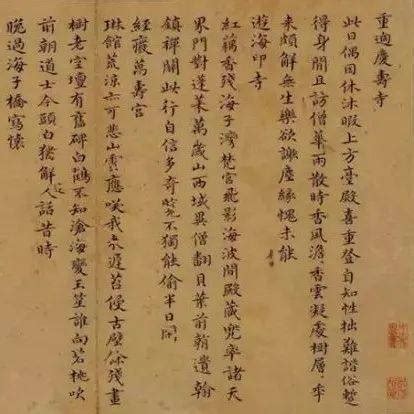 重過慶壽寺
此日偶因休沐暇上方臺殿喜重登自知性拙難諧俗暫
得身閒且訪僧華雨散時香風澹香雲凝處樹層〻年
來頗解無生樂欲謝塵緣愧未能
遊海印寺
紅藕香殘海子灣梵宮飛影海波間殿藏兜率諸天
界門對蓬萊萬歲山西域異僧翻貝葉前朝遺翰
鎮禪關此行自信多奇覽不獨能偷半日閒
經廢萬壽宮
琳館荒涼亦可悲山靈應笑我來遲苔侵古壁餘殘畫
樹老空壇有舊碑白鶴不知滄海變玉笙誰向碧桃吹
前朝道士今頭白猶解逢人話昔時
晚過海子橋寫懷